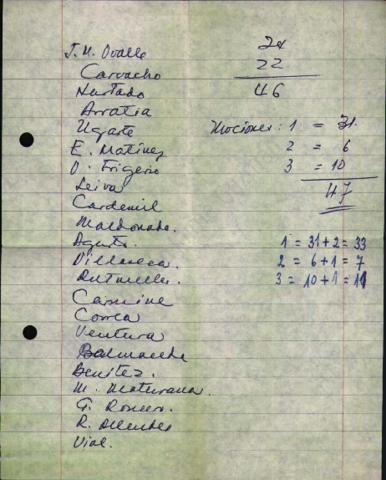 J. M. Ovalle
Carvacho
Hurtado
Arratia
Ugarte
E. Matinez
O. Frigerio
Leiva
Cardemil
Maldonado.
Agusto.
Villaseca.
Carmine
Correa
Ventura
Balmaceda
Benitez.
M. Maturana.
G. Romero.
R. Allendes
Vial.
24
22
46
Mociones: 1 = 31.
2 = 6
3 = 10
47
1 = 31 + 2 = 33
2 = 6 + 1 = 7
3 = 10 + 1 = 11